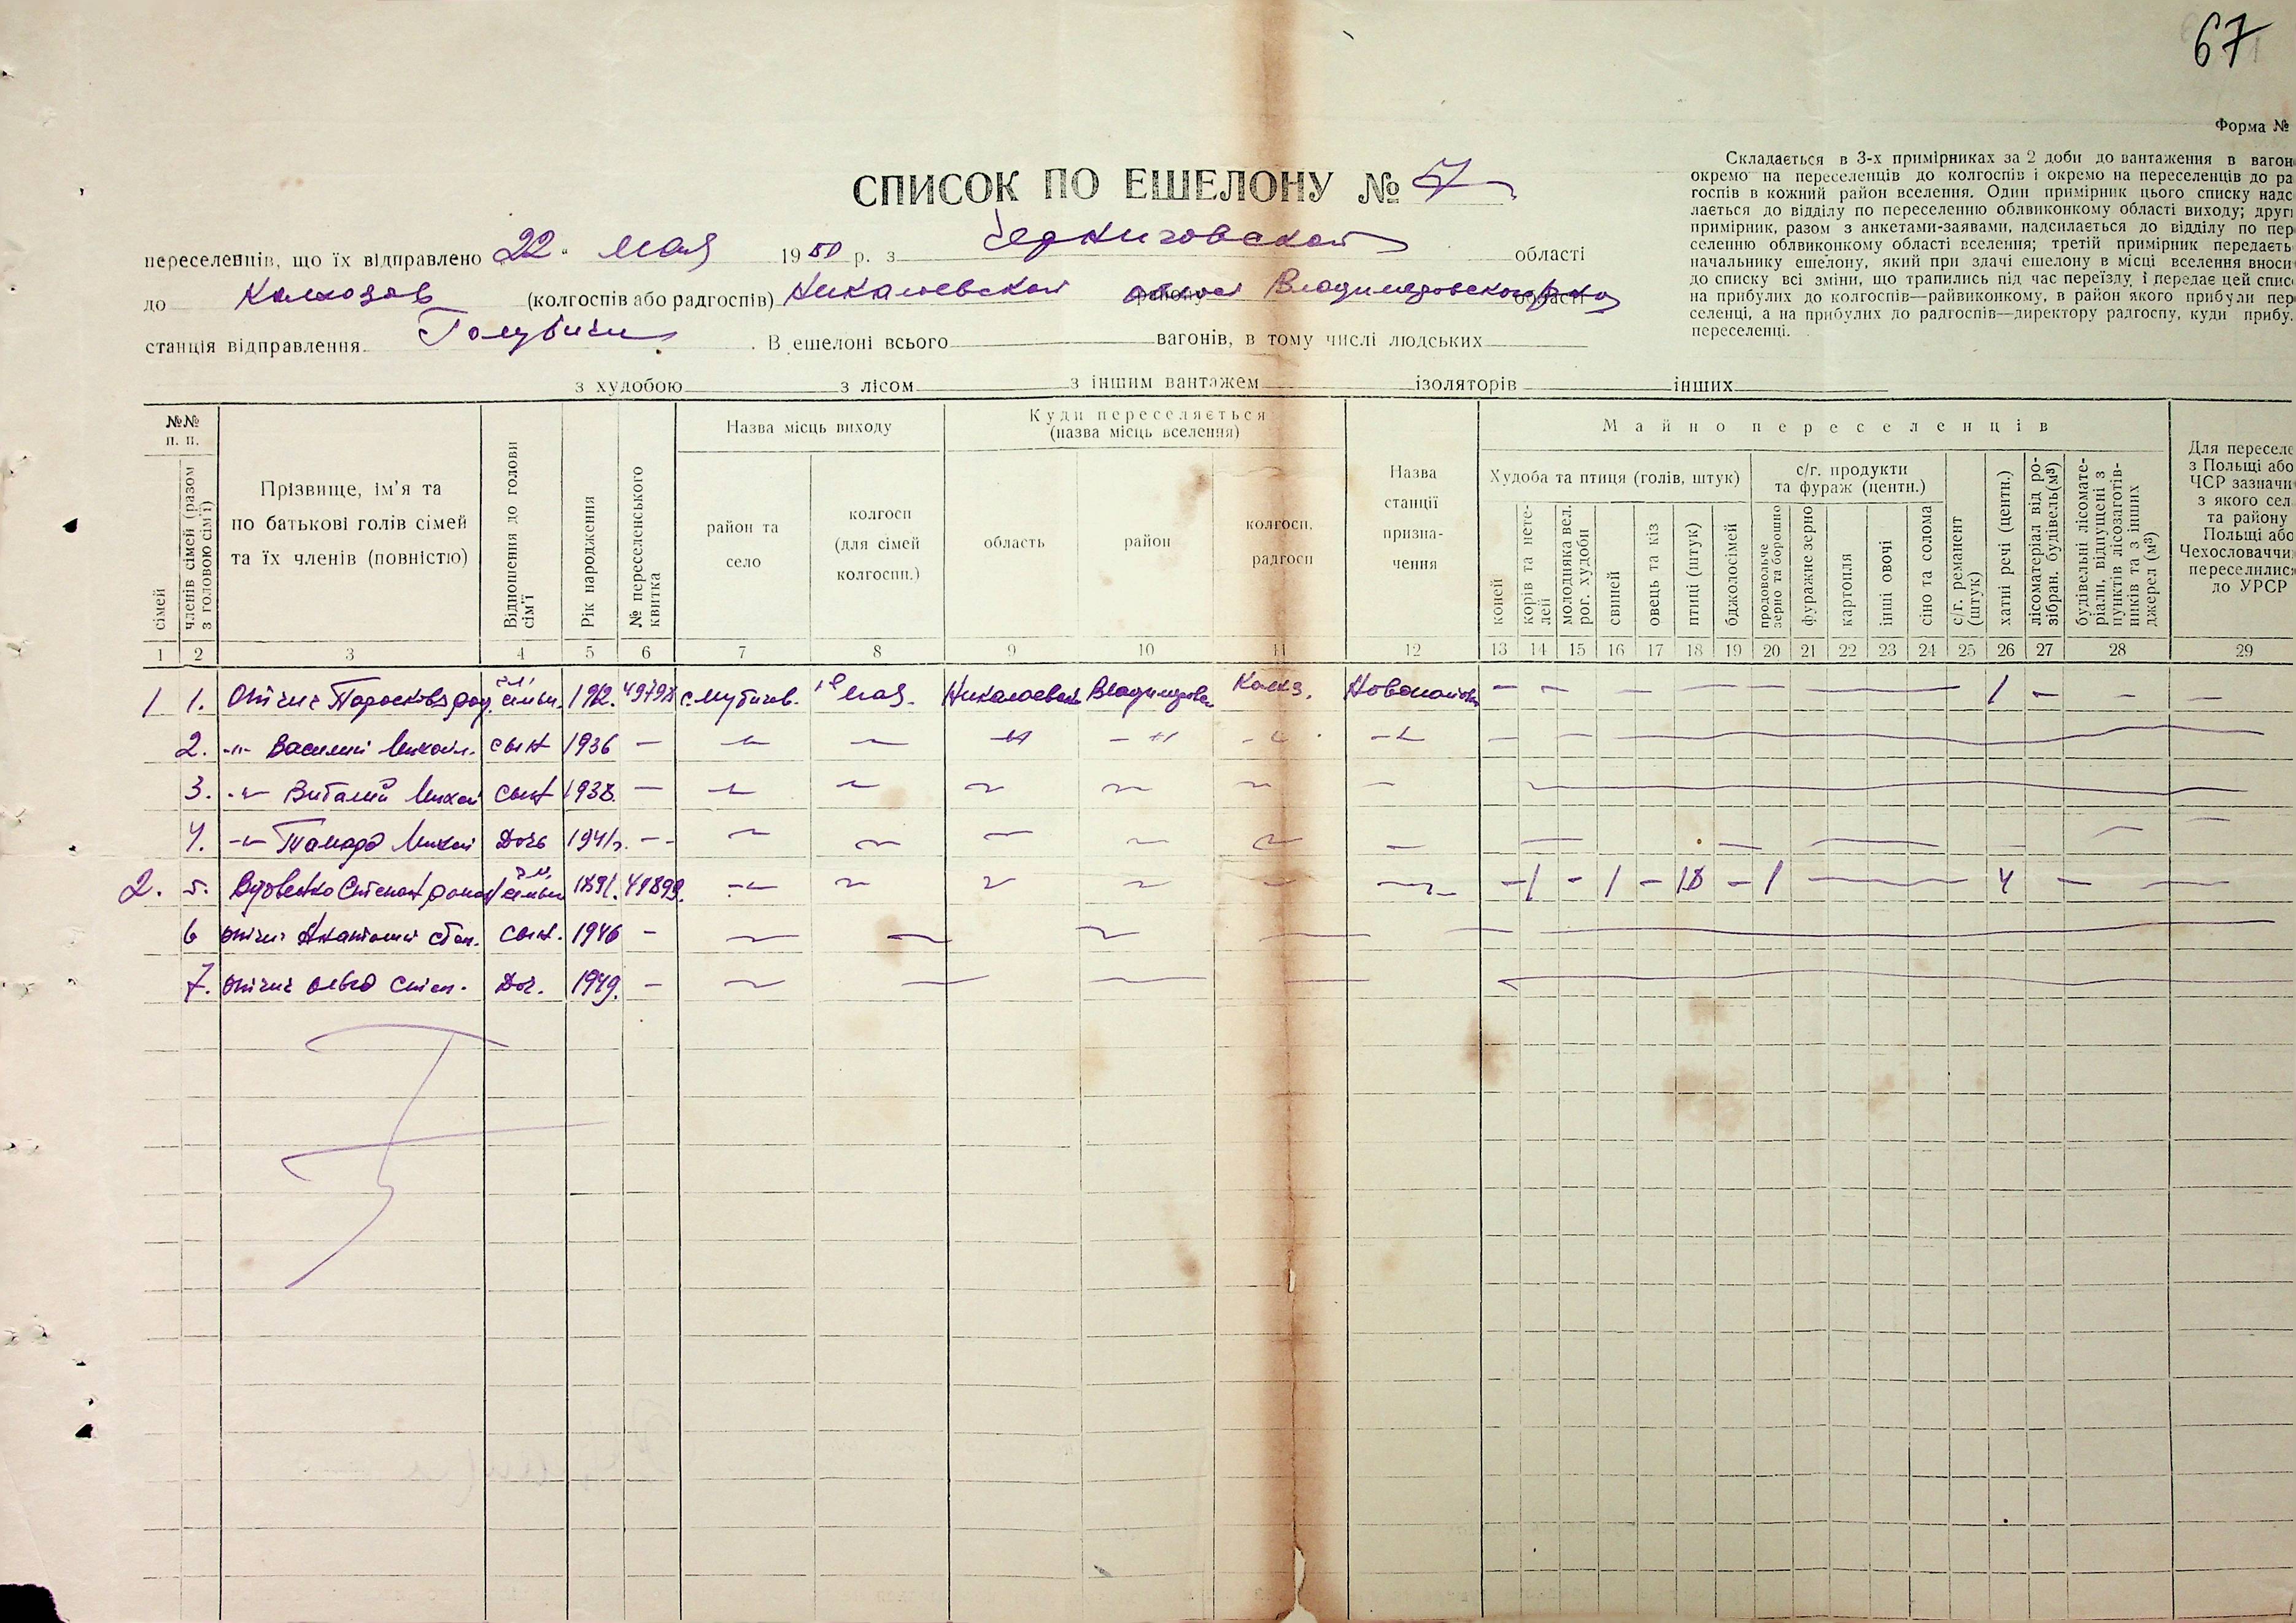 67
Форма №
Складається в 3-х примірниках за 2 доби до вантаження в вагон
окремо на переселенців до колгоспів і окремо на переселенців до ра
госпів в кожний район вселення. Один примірник цього списку надс
лається до відділу по переселенню облвиконкому області виходу; други
примірник, разом з анкетами-заявами, надсилається до відділу по пер
селенню облвиконкому області вселення; третій примірник передаєть
начальнику ешелону, який при здачі ешелону в місці вселення вноси
до списку всі зміни, що трапились під час переїзду, і передає цей спис
на прибулих до колгоспів—райвиконкому, в район якого прибули пер
селенці, а на прибулих до радгоспів—директору радгоспу, куди прибу.
переселенці.
СПИСОК ПО ЕШЕЛОНУ № 7
переселенців, що їх відправлено 22 мая 1950 р. з Черниговской області
до Колхозов (колгоспів або радгоспів) Николаевской Владимировского
станція відправлення Голубичи. В ешелоні всього вагонів, в тому числі людських
з худобою з лісом з іншим вантажем ізоляторів інших
№№ п. п.
сімей
членів сімей (разом з головою сім'ї)
Прізвище, ім'я та по батькові голів сімей та їх членів (повністю)
Відношення до голови сім'ї
Рік народження
№ переселенського квитка
Назва місць виходу
район та село
колгосп (для сімей колгоспн.)
Куди переселяється (назва місць вселення)
область
район
колгосп, радгосп
Назва станції призна-чення
Майно переселенців
Худоба та птиця (голів, штук)
коней
корів та нете-лей
молодняка вел. рог. худоби
свиней
овець та кіз
птиці (штук)
бджолосімей
с/г. продукти та фураж (центн.)
продовольче зерно та борошно
фуражне зерно
картопля
інші овочі
сіно та солома
с/г. реманент (штук)
хатні речі (центн.)
лісоматеріал від ро-зібран. будівель(м³)
будівельні лісомате-ріали, відпущені з пунктів лісозаготів-ників та з інших джерел (м³)
Для переселе з Польщі або ЧСР зазначи з якого сел та району Польщі або Чехословаччи переселились до УРСР
1 2 3 4 5 6 7 8 9 10 11 12 13 14 15 16 17 18 19 20 21 22 23 24 25 26 27 28 29
1 1. семьи 1912. 49798 1е мая. Николаевск Владимиров Колхз. — — — — — — — 1 — — —
2. -"- Василий Михайл. сын 1936 —
3. -"- Виталий Михай сын 1938. —
4. -"- Тамара Михай Дочь 1941г. — -
2. 5. Степан семьи 1891. 49899. - 1 - 1 - 18 - 1 — 4 — —
6 Степ. сын. 1946 —
7. Степ. Доч. 1949. —